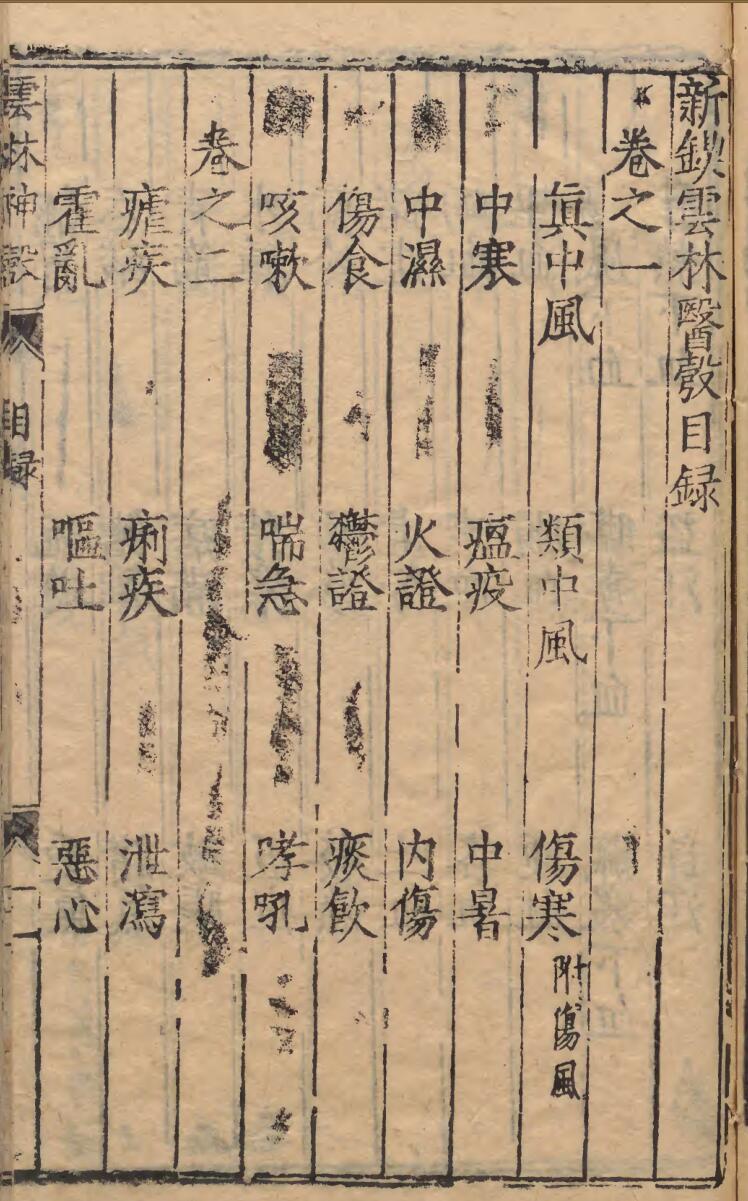 新鍥雲林醫彀目録
卷之一
眞中風 類中風 傷寒 附傷風
中寒 瘟疫 中暑
中濕 火證 内傷
傷食 鬱證 痰飲
咳嗽 喘急 哮吼
卷之二
瘧疾 痢疾 泄瀉
霍亂 嘔吐 惡心
雲林神彀 目録 一